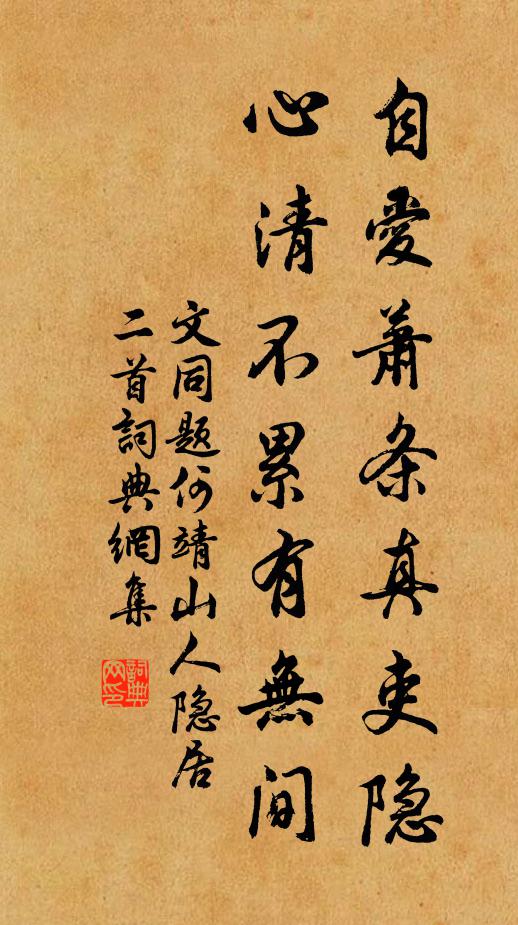 自愛蕭条真吏隐
心清不累有無间
文同题何靖山人隐居
二首詞典網集
詞典
网印